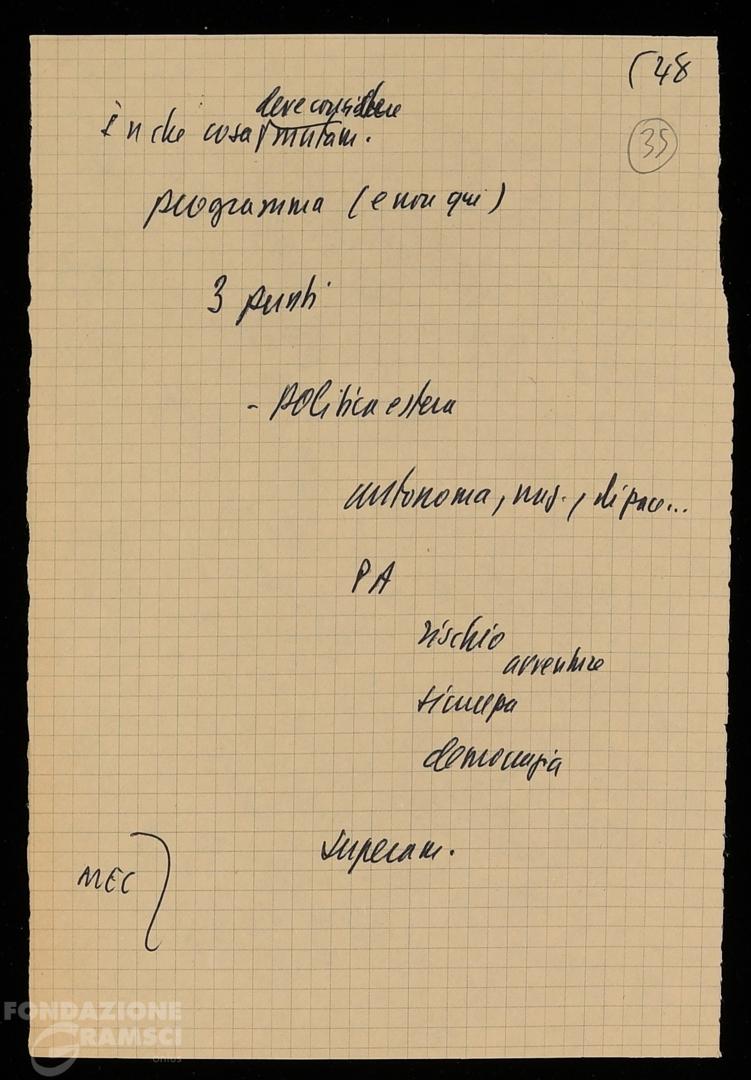 (48
35
deve consistere
in che cosa mutam.
programma (e non qui)
3 punti
- politica estera
autonoma, naz., di pace...
PA
rischio
avventure
sicurezza
democrazia
superam.
MEC
FONDAZIONE
GRAMSCI
onlus